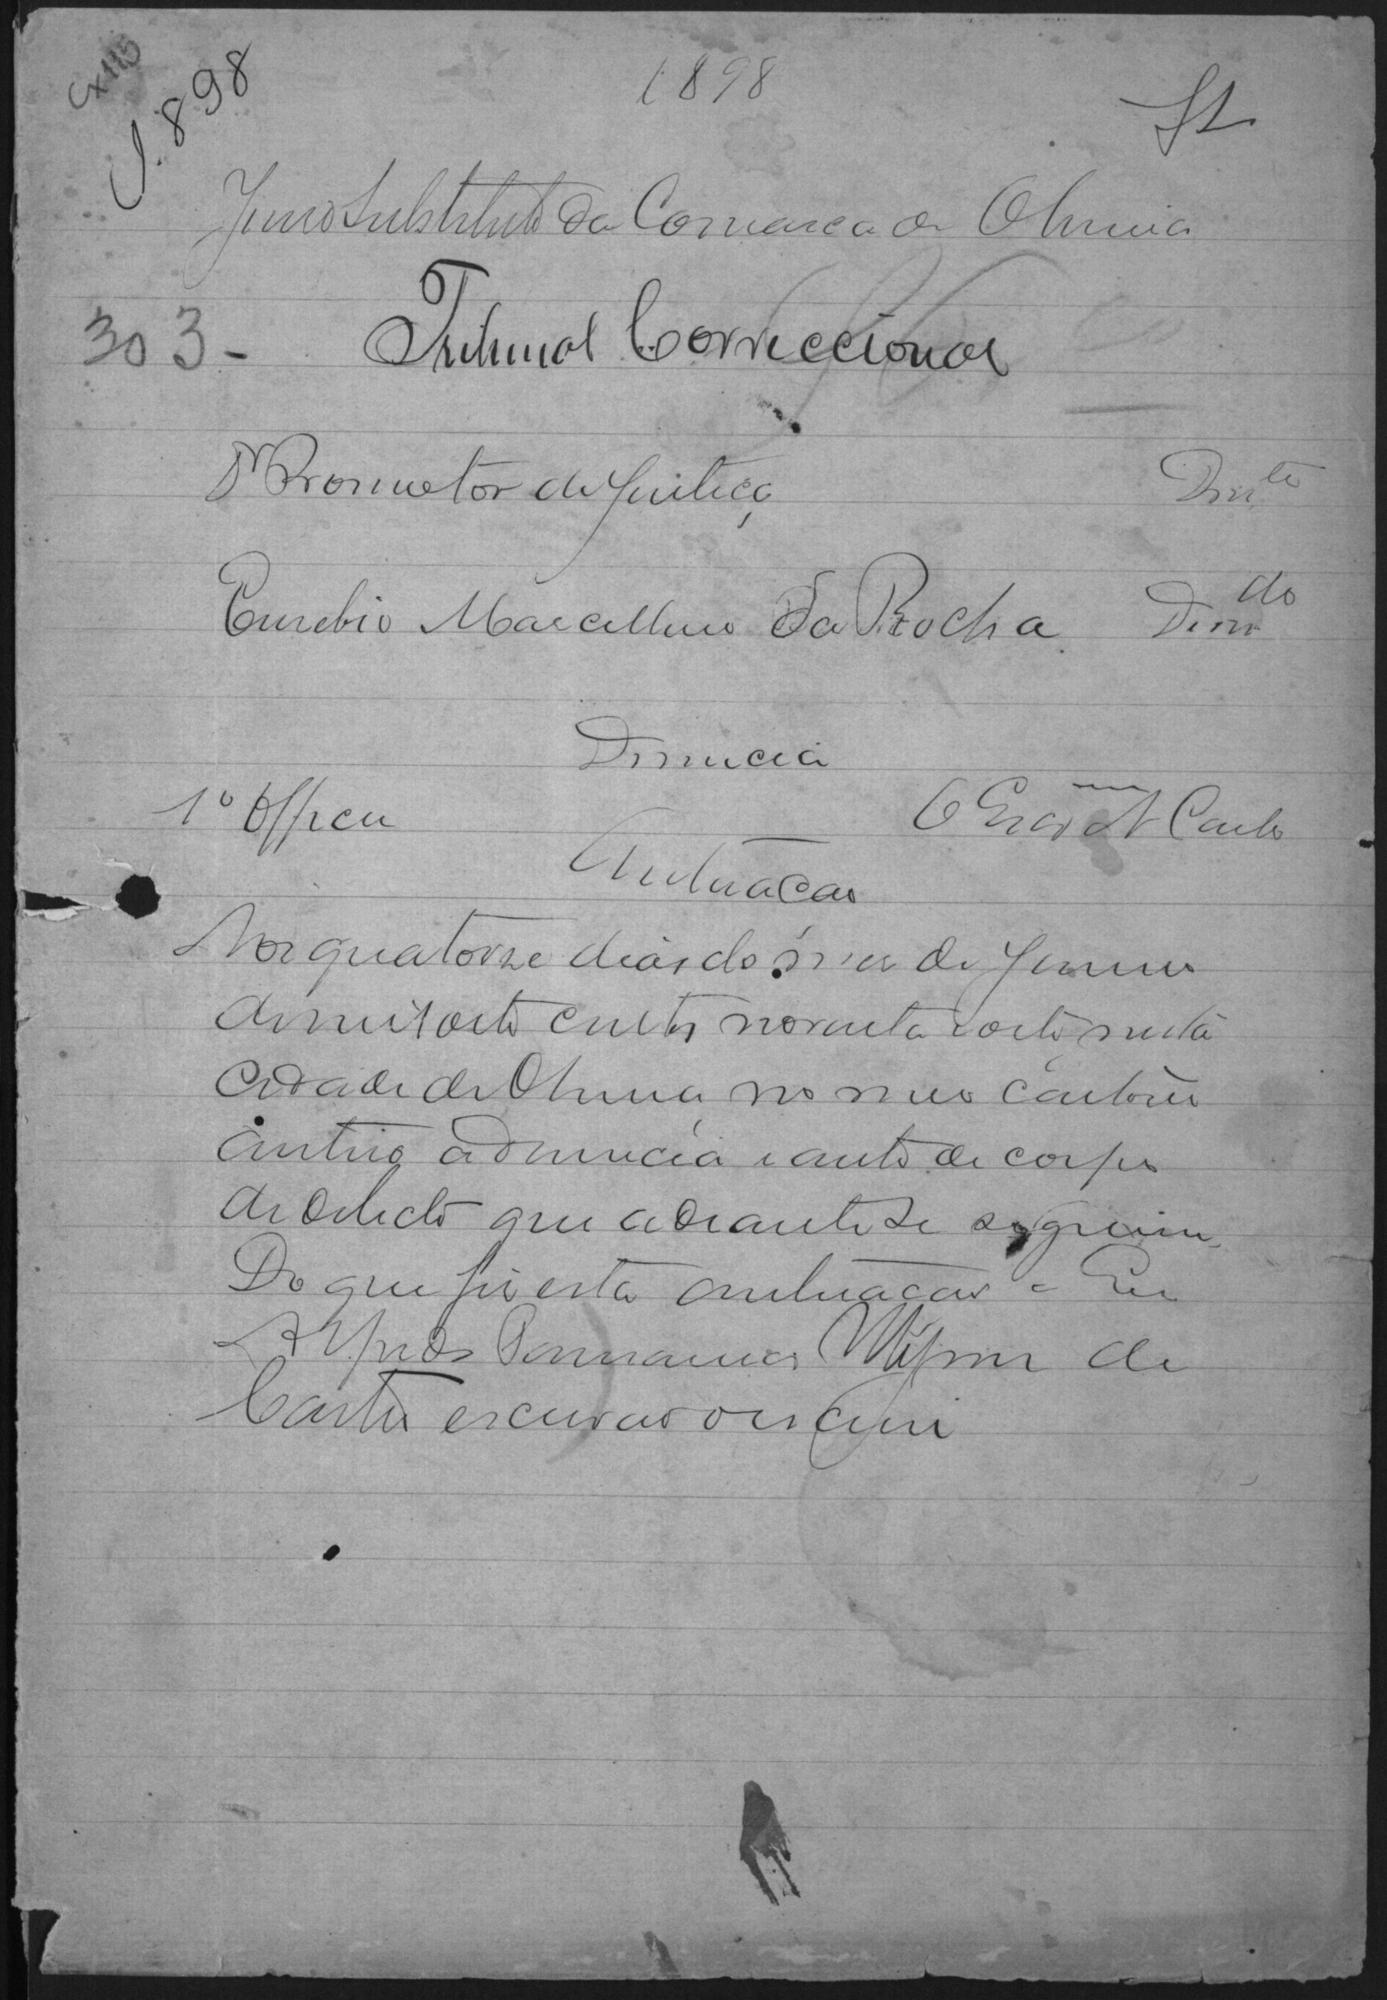 Cx 115
1898
J. 898
Juizo Substituto da Comarca de Oliveira
303 - Tribunal Correccional
Dr Promotor de Justiça Dnte
Euzebio Marcellino da Rocha Denndo
Denuncia
1º Officio O Escram Castro
Autuação
Aos quatorze dias do mes de Janeiro
de mil oito centos noventa e oito nesta
Cidade de Oliveira no meu Cartorio
autuo a denuncia e auto de corpo
de delicto que adeante se seguem.
Do que fiz esta autuação e Eu
Alfredo de
Castro escrivão escrevi